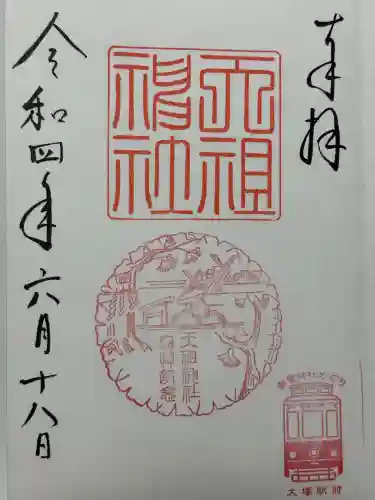 奉拝
天祖
神社
天祖神社
参拝記念
大塚駅前
令和四年六月十八日